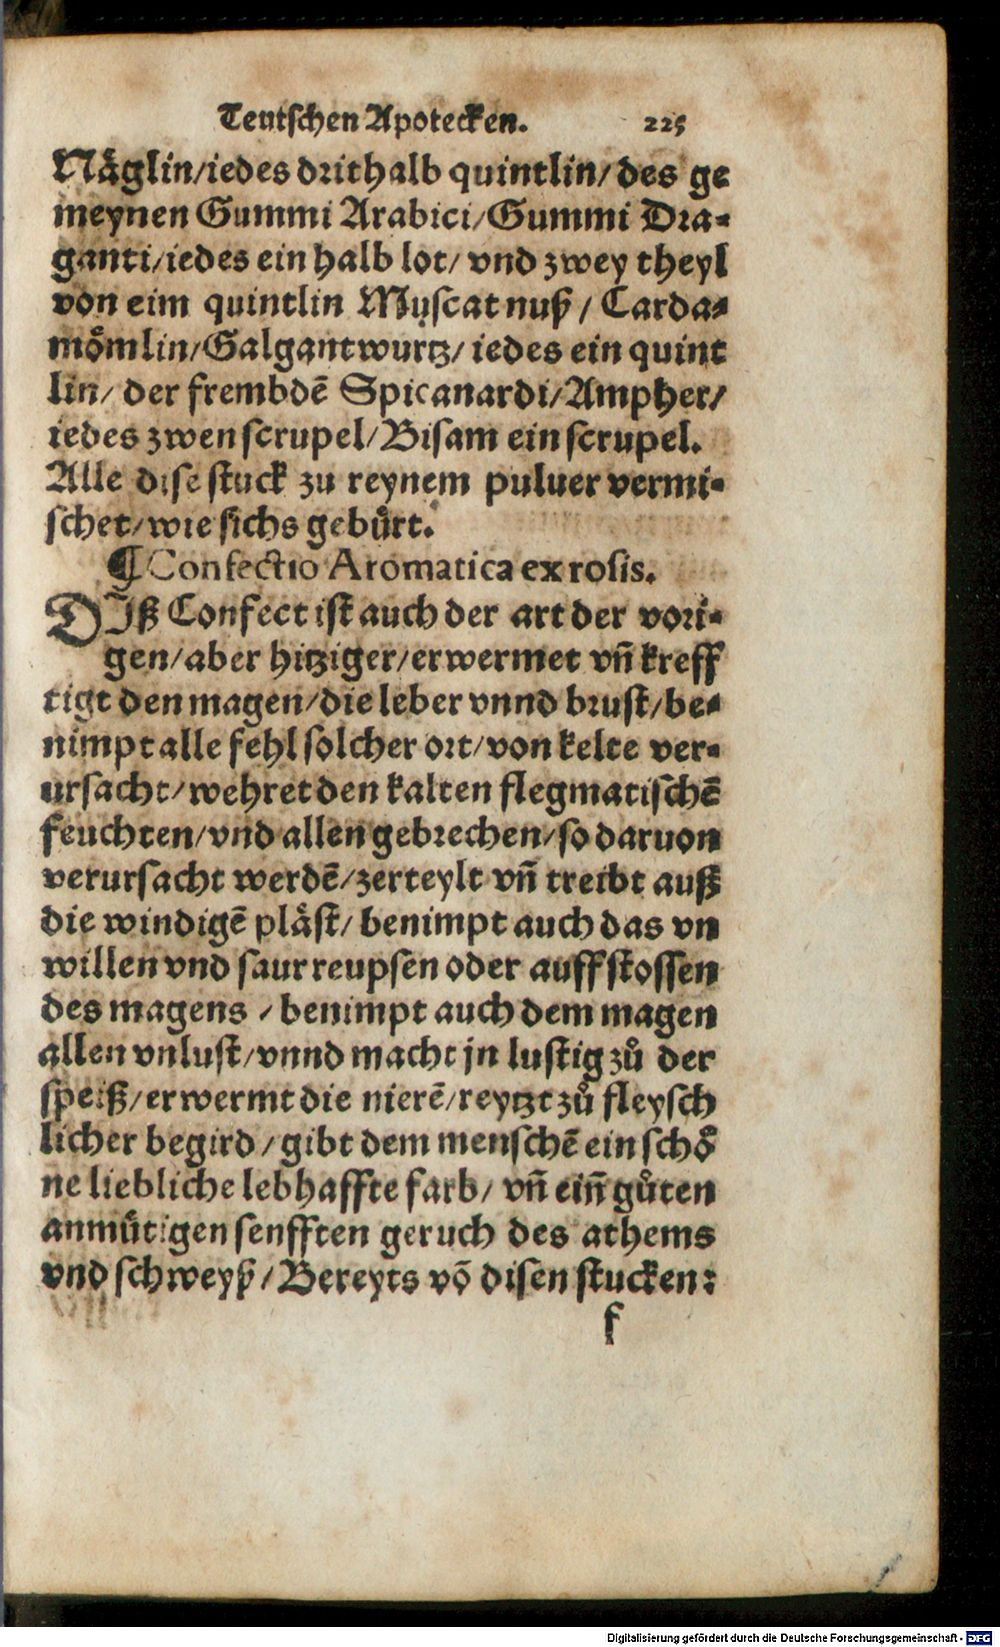 Teutschen Apotecken. 225
Näglin/iedes drithalb quintlin/des ge
meynen Gummi Arabici/Gummi Dra-
ganti/iedes ein halb lot/ vnd zwey theyl
von eim quintlin Muscatnuß / Carda-
mömlin/Galgantwurtz/ iedes ein quint
lin/ der frembdē Spicanardi/Ampher/
iedes zwen scrupel/Bisam ein scrupel.
Alle dise stuck zu reynem puluer vermi-
schet/wie sichs gebürt.
¶Confectio Aromatica ex rosis.
DIß Confect ist auch der art der vori-
gen/aber hitziger/erwermet vñ kreff
tigt den magen/die leber vnnd brust/be-
nimpt alle fehl solcher ort/von kelte ver-
ursacht/wehret den kalten flegmatischē
feuchten/vnd allen gebrechen/so daruon
verursacht werdē/zerteylt vñ treibt auß
die windigē pläst/ benimpt auch das vn
willen vnd saur reupsen oder auffstossen
des magens / benimpt auch dem magen
allen vnlust/vnnd macht jn lustig zů der
speiß/erwermt die nierē/reytzt zů fleysch
licher begird/gibt dem menschē ein schö
ne liebliche lebhaffte farb/ vñ eiñ gůten
anmütigen senfften geruch des athems
vnd schweyß/Bereyts vō disen stucken:
f
Digitalisierung gefördert durch die Deutsche Forschungsgemeinschaft - DFG